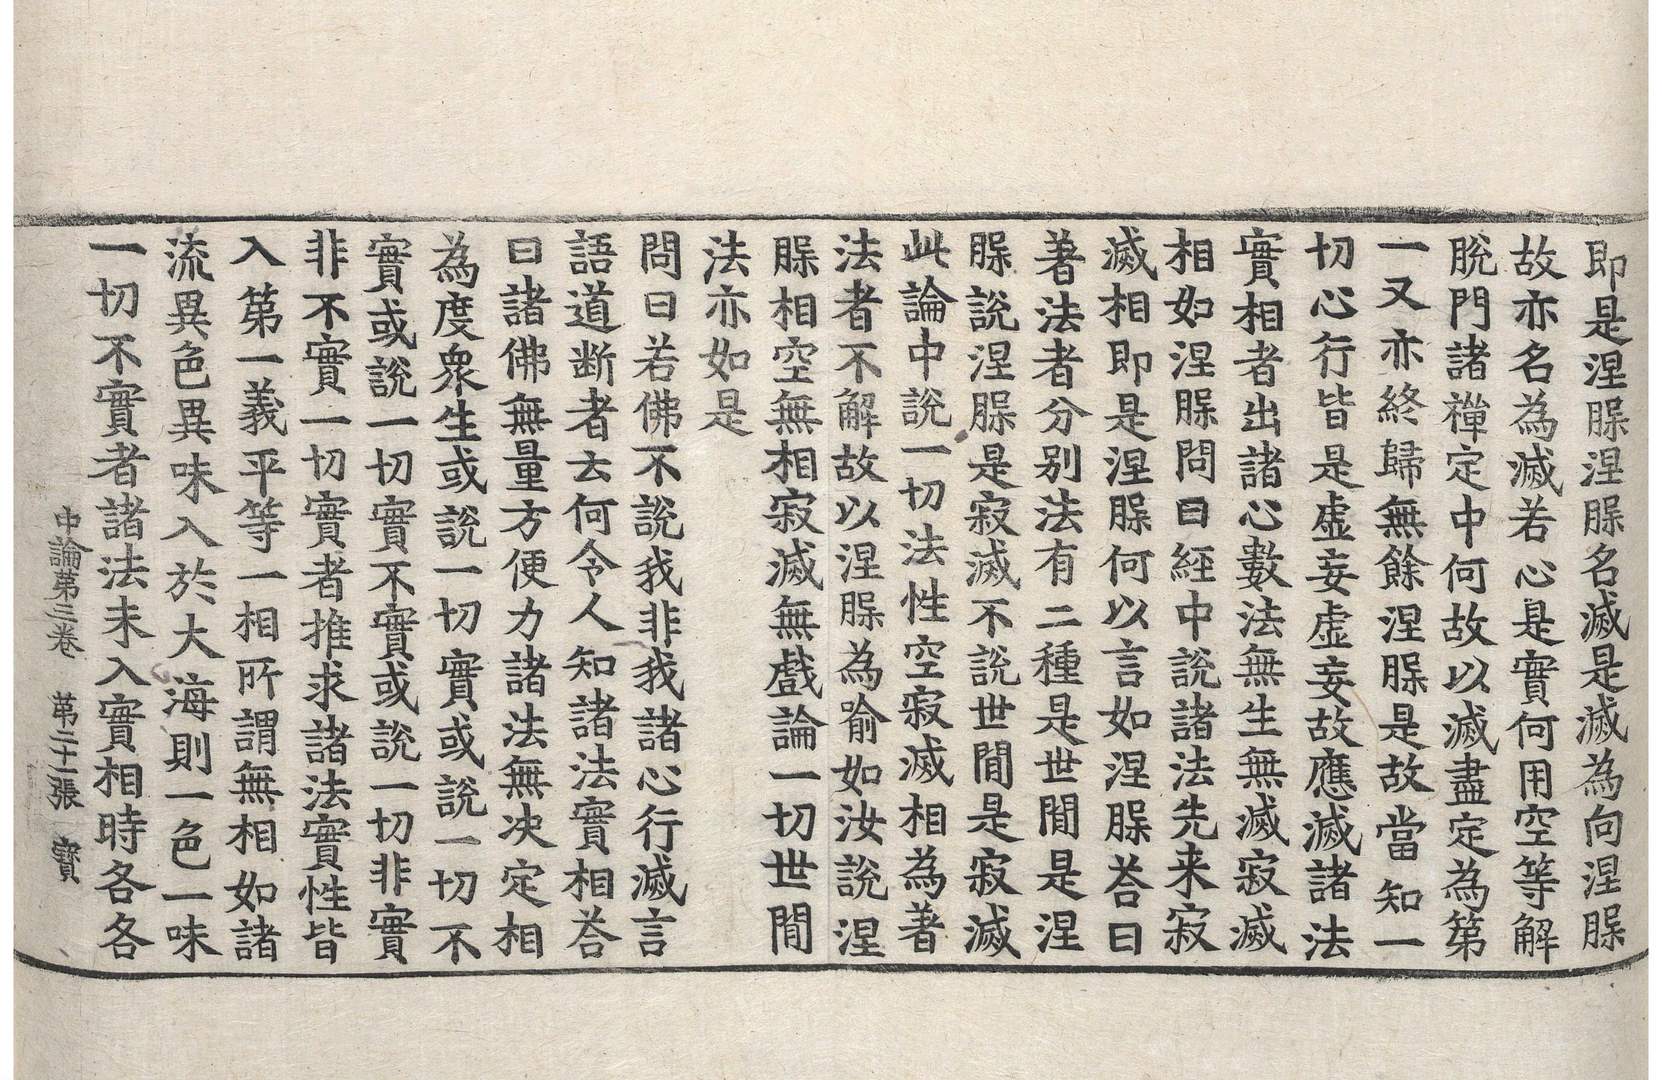 即是涅𣵀涅𣵀名滅是滅為向涅𣵀
故亦名為滅若心是實何用空等解
脫門諸禪定中何故以滅盡定為第
一又亦終歸無餘涅𣵀是故當知一
切心行皆是虛妄虛妄故應滅諸法
實相者出諸心數法無生無滅寂滅
相如涅𣵀問曰經中說諸法先来寂
滅相即是涅𣵀何以言如涅𣵀荅曰
著法者分別法有二種是世間是涅
𣵀說涅𣵀是寂滅不說世間是寂滅
此論中說一切法性空寂滅相為著
法者不解故以涅𣵀為喻如汝說涅
𣵀相空無相寂滅無戲論一切世間
法亦如是
問曰若佛不說我非我諸心行滅言
語道断者云何令人知諸法實相荅
曰諸佛無量方便力諸法無决定相
為度衆生或說一切實或說一切不
實或說一切實不實或說一切非實
非不實一切實者推求諸法實性皆
入第一義平等一相所謂無相如諸
流異色異味入於大海則一色一味
一切不實者諸法未入實相時各各
中論第三卷 第二十一張 寳